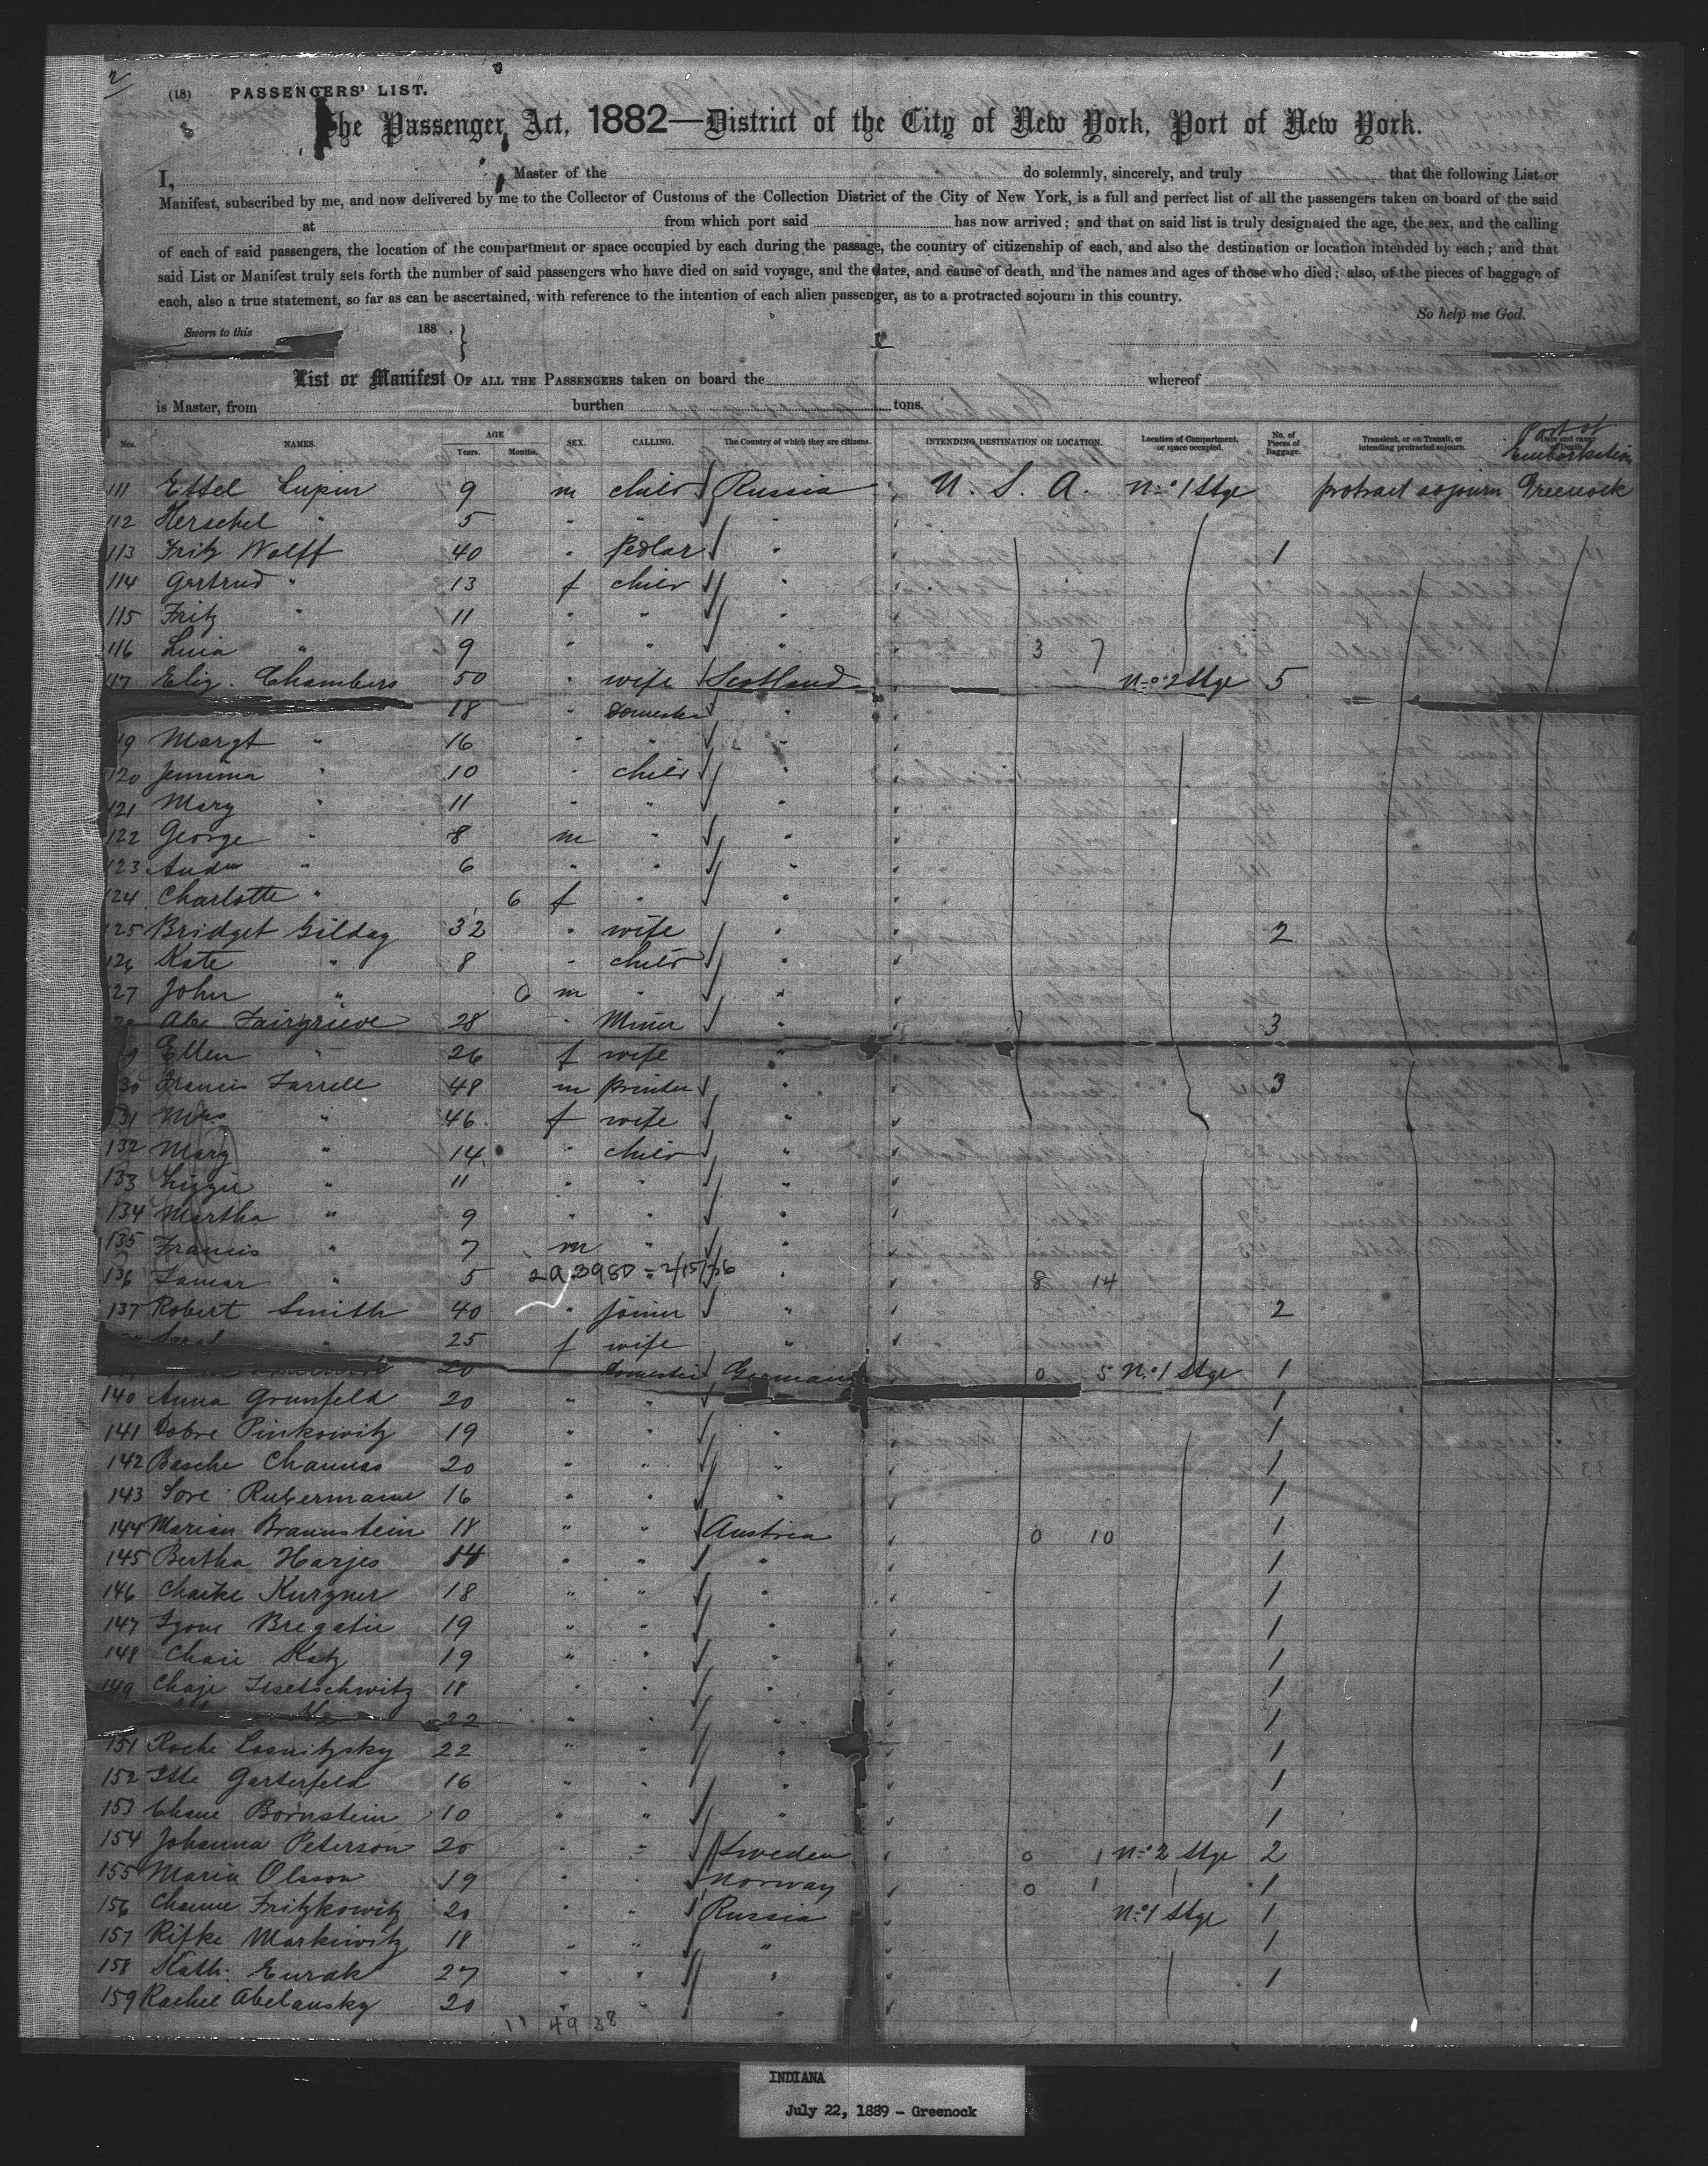 2
(18) PASSENGERS' LIST.
The Passenger Act, 1882—District of the City of New York, Port of New York.
I, Master of the do solemnly, sincerely, and truly that the following List or
Manifest, subscribed by me, and now delivered by me to the Collector of Customs of the Collection District of the City of New York, is a full and perfect list of all the passengers taken on board of the said
at from which port said has now arrived; and that on said list is truly designated the age, the sex, and the calling
of each of said passengers, the location of the compartment or space occupied by each during the passage, the country of citizenship of each, and also the destination or location intended by each; and that
said List or Manifest truly sets forth the number of said passengers who have died on said voyage, and the dates, and cause of death, and the names and ages of those who died; also, of the pieces of baggage of
each, also a true statement, so far as can be ascertained, with reference to the intention of each alien passenger, as to a protracted sojourn in this country.
So help me God.
Sworn to this 188 . }
List or Manifest OF ALL THE PASSENGERS taken on board the whereof
is Master, from burthen tons.
Nos. NAMES. AGE Years. Months. SEX. CALLING. The Country of which they are citizens. INTENDING DESTINATION OR LOCATION. Location of Compartment, or space occupied. No. of Pieces of Baggage. Transient, or on Transit, or intending protracted sojourn. Date and cause of Death. Port of Embarkation
111 Ettel Lupin 9 m child Russia U. S. A. No 1 Stge protract sojourn Greenock
112 Herschel " 5 " " "
113 Fritz Wolff 40 " Pedlar " 1
114 Gertrud " 13 f child "
115 Fritz " 11 " " "
116 " 9 " " " 3 7
117 Eliz. Chambers 50 " wife Scotland No 2 Stge 5
18 " Domestic "
19 Margt " 16 " " "
120 Jemima " 10 " child "
121 Mary " 11 " " "
122 George " 8 m " "
123 Andw " 6 " " "
124 Charlotte " 6 f " "
125 Bridget Gilday 32 " wife " 2
126 Kate " 8 " child "
127 John " 6 m " "
Alex Fairgrieve 28 " Miner " 3
9 Ellen " 26 f wife "
30 Francis Farrell 48 m Printer " 3
31 Mrs " 46 f wife "
132 Mary " 14 " child "
133 Lizzie " 11 " " "
134 Martha " 9 " " "
135 Francis " 7 m " "
136 " 5 2/15/ " 8 14
137 Robert Smith 40 " Joiner " 2
" 25 f wife "
20 Domestic Germany 0 5 No 1 Stge 1
140 Anna Grunfeld 20 " " 1
141 Dobre Pinkowitz 19 " " " 1
142 Basche 20 " " " 1
143 Sore Rubermann 16 " " " 1
144 Marian Braunstein 18 " " Austria 0 10 1
145 Bertha Harjes 14 " " " 1
146 Chaike Kurzner 18 " " " 1
147 19 " " " 1
148 Chaie Katz 19 " " " 1
149 Chaje 18 " " " 1
22 " " " 1
151 Roche Losnitzsky 22 " " " 1
152 Itte Garterfeld 16 " " " 1
153 Chane Bornstein 10 " " " 1
154 Johanna Peterson 20 " " Sweden 0 1 No 2 Stge 2
155 Maria Olsson 19 " " Norway 0 1 1
156 Channe Fritzkowitz 20 " " Russia No 1 Stge 1
157 Rifke Markiwitz 18 " " " 1
158 Kath. Eurak 27 " " " 1
159 Rachel Abelansky 20 " " "
11 49 38
INDIANA
July 22, 1889 - Greenock